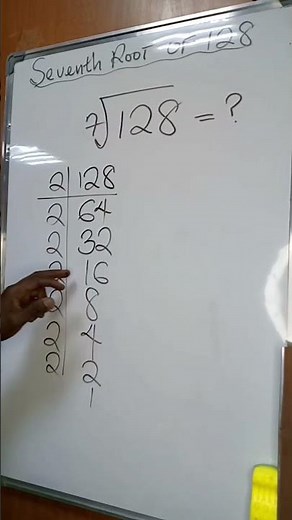 Seventh Root of 128
7√128 = ?
2 | 128
2 | 64
2 | 32
2 | 16
2 | 8
2 | 4
2 | 2
1